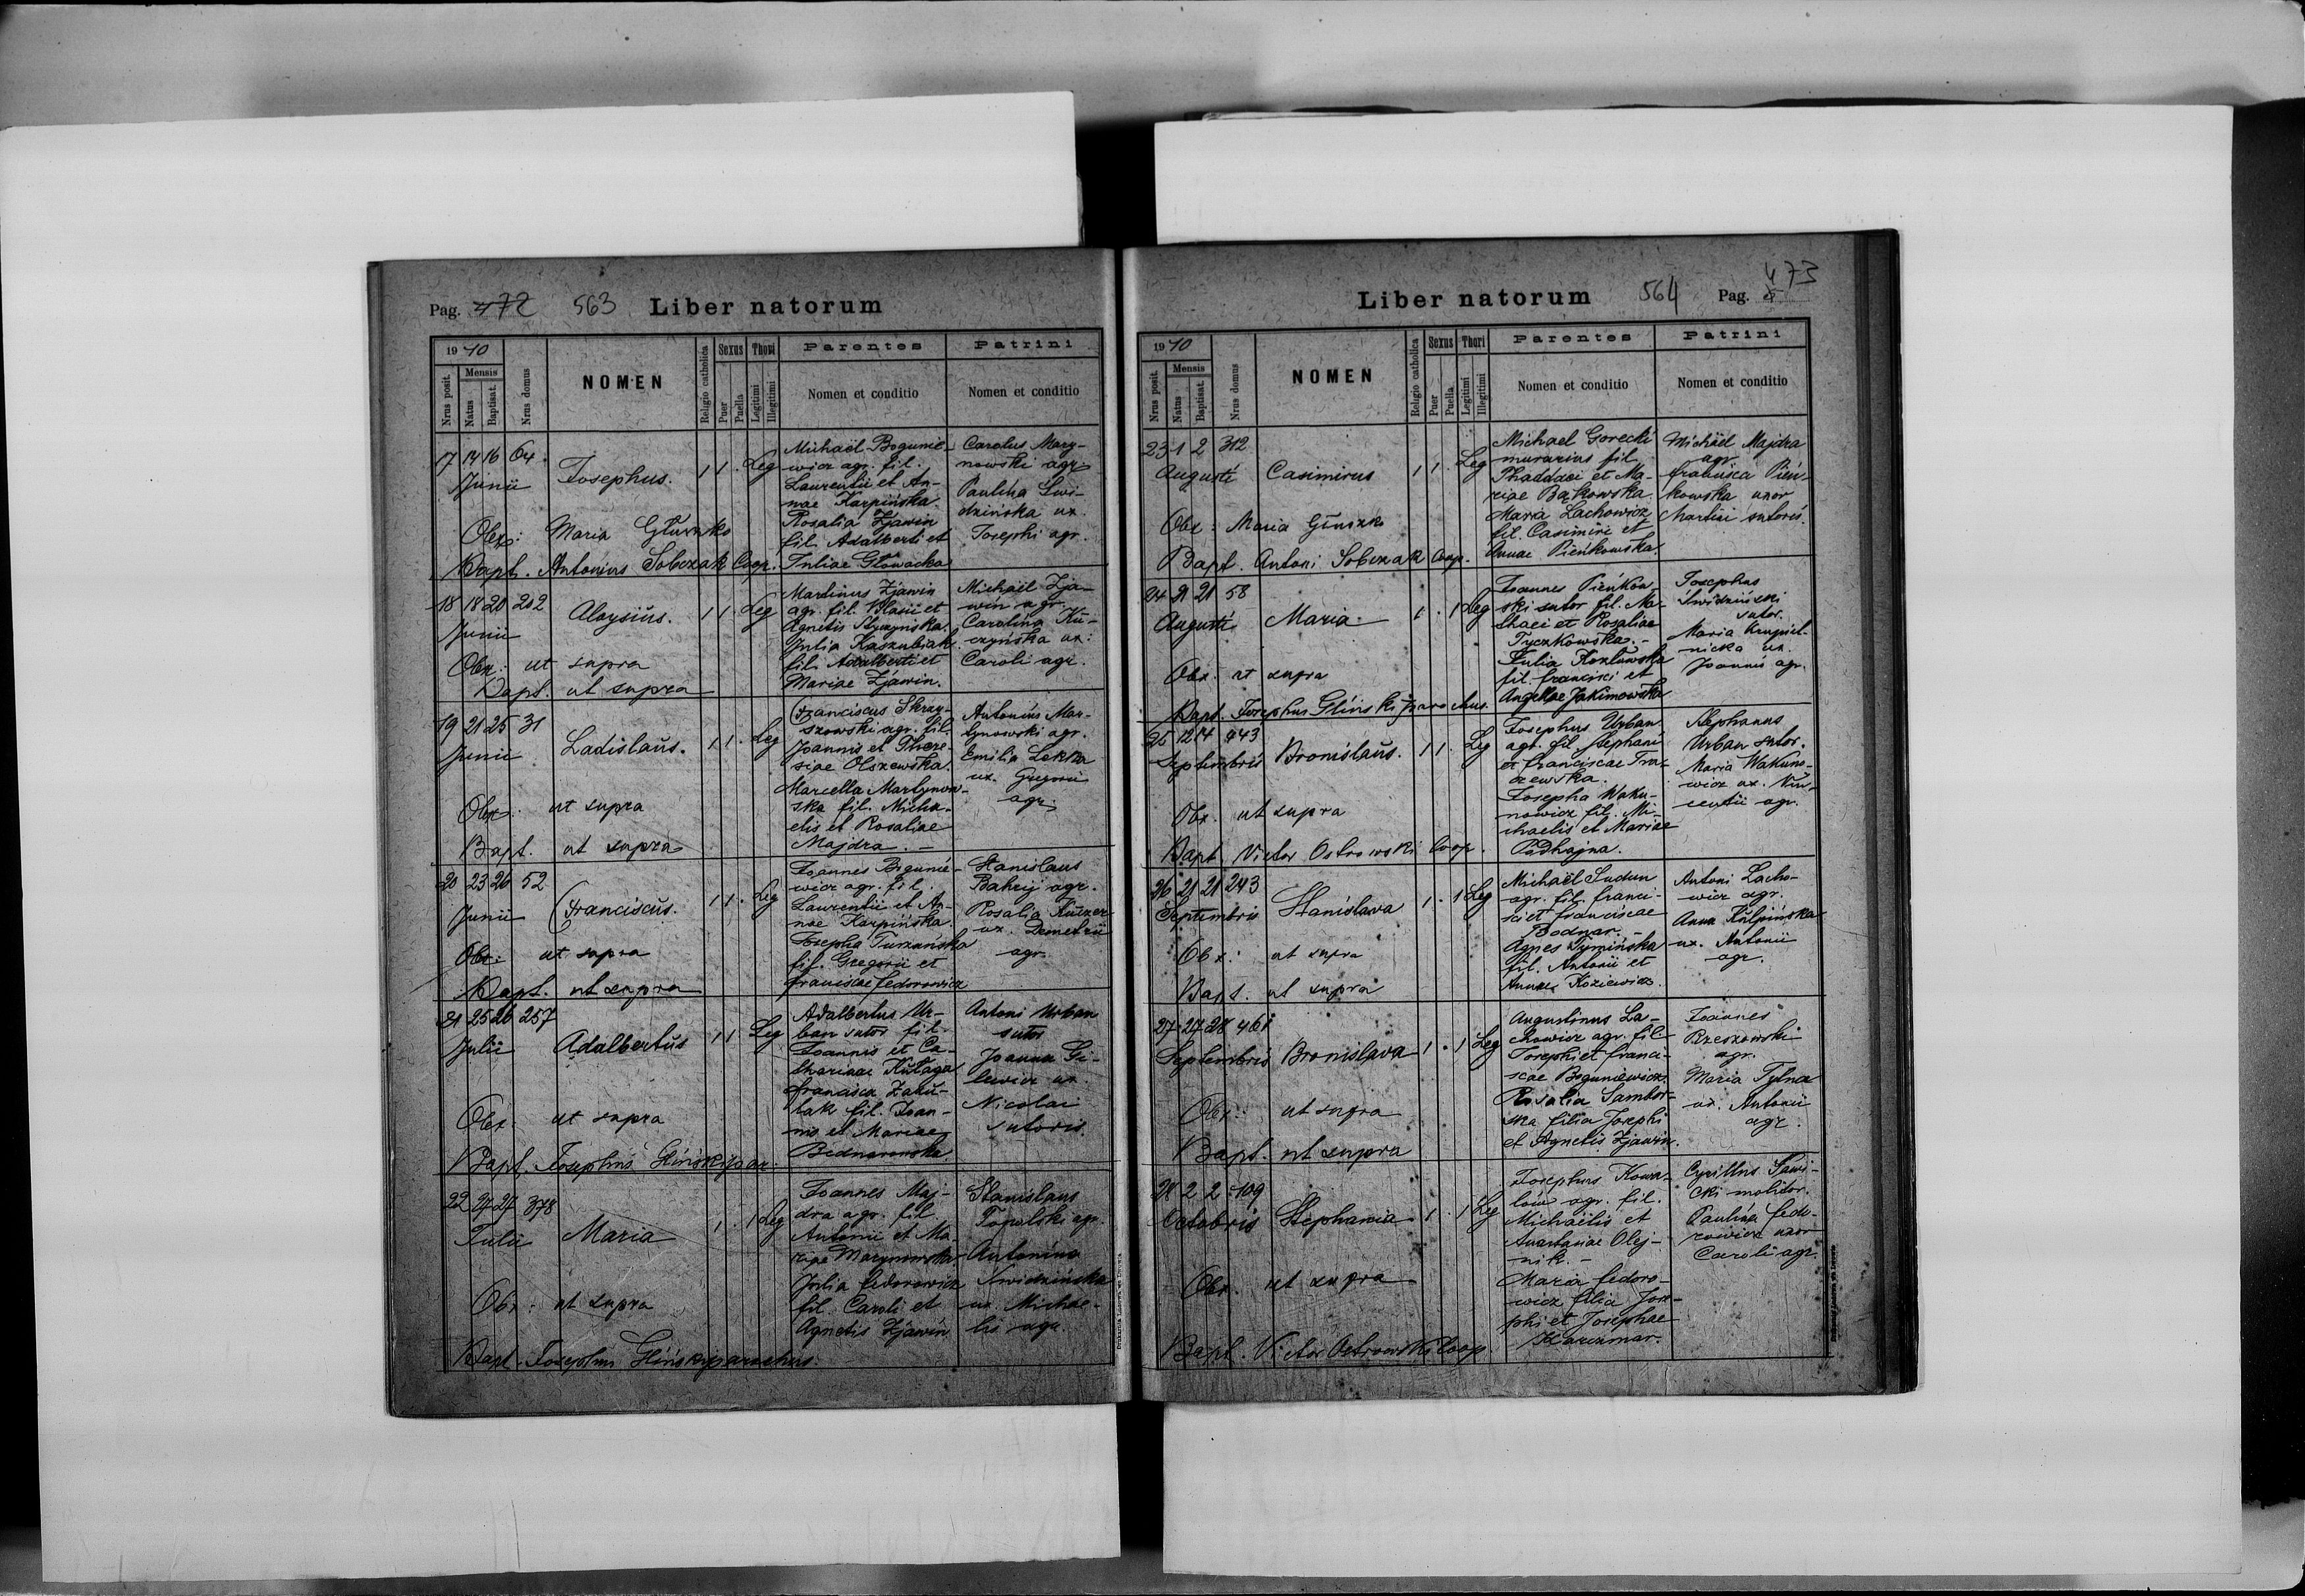 Pag. 472 563 Liber natorum
19 10
Nrus posit.
Mensis
Natus
Baptisat.
Nrus domus
NOMEN
Religio catholica
Sexus
Puer
Puella
Thori
Legitimi
Illegitimi
Parentes
Nomen et conditio
Patrini
Nomen et conditio
17 14 16 64.
Junii
Josephus. 1 1. Leg
Obex: Maria Głuszko
Bapt. Antonius Sobczak Coop.
Michaël Bogunie-
wicz agr. fil.
Laurentii et An-
nae Karpińska.
Rosalia Zjawin
fil. Adalberti et
Juliae Głowacka
Carolus Mary-
nowski agr.
Paulina Świ-
dzińska ux.
Josephi agr.
18 18 20 202
Junii
Aloysius. 1 1. Leg
Obx: ut supra
Bapt. ut supra
Martinus Zjawin
agr. fil. Blasii et
Agnetis
Julia Kaszubiak
fil. Adalberti et
Mariae Zjawin.
Michaël Zja-
win agr.
Carolina Ku-
czyńska ux:
Caroli agr.
19 21 25 31
Junii
Ladislaus. 1 1. Leg
Obx: ut supra
Bapt. ut supra
Franciscus Skray-
szowski agr. fil.
Joannis et There-
siae Olszewska.
Marcella Martynow-
ska fil. Micha-
elis et Rosaliae
Majdra. -
Antonius Mar-
tynowski agr.
Emilia
ux. Gregorii
agr.
20 23 26 52
Junii
Franciscus. 1 1. Leg
Obx: ut supra
Bapt. ut supra
Joannes Bogunie-
wicz agr. fil.
Laurentii et An-
nae Karpińska.
Josepha Turzańska
fil. Gregorii et
Franciscae Fedorowicz
Stanislaus
Bahrij agr.
Rosalia
ux. Demetrii
agr.
21 25 26 257
Julii
Adalbertus 1 1 Leg
Obx: ut supra
Bapt. Josephus Gliński par.
Adalbertus Ur-
ban sutor fil.
Joannis et Ca-
tharinae Kułaga
Francisca Zaku-
lak fil. Joan-
nis et Mariae
Bednarowska.
Antoni Urban
sutor
Joanna Gi-
lewicz ux.
Nicolai
sutoris.
22 27 27 378
Julii
Maria 1. 1 Leg
Obx: ut supra
Bapt. Josephus Gliński parochus.
Joannes Maj-
dra agr. fil.
Antonii et Ma-
riae Marynowska.
Julia Fedorowicz
fil. Caroli et
Agnetis Zjawin
Stanislaus
Topolski agr.
Antonina
Świdzińska
ux. Michae-
lis agr.
Liber natorum 564 Pag. 473
19 10
Nrus posit.
Mensis
Natus
Baptisat.
Nrus domus
NOMEN
Religio catholica
Sexus
Puer
Puella
Thori
Legitimi
Illegitimi
Parentes
Nomen et conditio
Patrini
Nomen et conditio
23 1 2 312
Augusti
Casimirus 1 1. Leg
Obx: Maria Głuszko
Bapt. Antoni Sobczak Coop.
Michael Gorecki
murarius fil.
Thaddaei et Ma-
riae Bąkowska.
Maria Lachowicz
fil. Casimiri et
Annae Pieńkowska.
Michaël Majdra
agr.
Francisca Pień-
kowska uxor
Martini sutoris.
24 21 21 58
Augusti
Maria 1. 1 Leg
Obx: ut supra
Bapt. Josephus Gliński parochus.
Joannes Pieńkow-
ski sutor fil. Ma-
thaei et Rosaliae
Tyczkowska. -
Julia Kozłowska
fil. Francisci et
Angelae Jakimowska
Josephus
Świdziński
sutor.
Maria Krupiel-
nicka ux.
Joannis agr.
25 12 14 443
Septembris
Bronislaus. 1 1. Leg
Obx. ut supra
Bapt. Victor Ostrowski Coop.
Josephus Urban
agr. fil. Stephani
et Franciscae Tra-
czewska.
Josepha Waku-
nowicz fil. Mi-
chaelis et Mariae
Podhajna.
Stephanus
Urban sutor.
Maria Wakuno-
wicz ux. Vin-
centii agr.
26 21 21 243
Septembris
Stanislava 1. 1 Leg
Obx: ut supra
Bapt. ut supra
Michaël Sudun
agr. fil. Franci-
sci et Franciscae
Bodnar. -
Agnes Tymińska
fil. Antonii et
Annae Koziewicz.
Antoni Lacho-
wicz agr.
Anna Kulpińska
ux. Antonii
agr.
27 27 28 461
Septembris
Bronislava 1. 1 Leg
Obx: ut supra
Bapt. ut supra
Augustinus La-
chowicz agr. fil.
Josephi et Franci-
scae Boguniewicz.
Rosalia Sambor-
ska filia Josephi
et Agnetis Zjawin.
Joannes
Rzeszowski
agr.
Maria Tylna
ux. Antonii
agr.
28 2 2 109
Octobris
Stephania 1. 1 Leg
Obx. ut supra
Bapt. Victor Ostrowski Coop.
Josephus Kowa-
lów agr. fil.
Michaëlis et
Anastasiae Olej-
nik. -
Maria Fedoro-
wicz filia Jose-
phi et Josephae
Karczmar.
Cyrillus Sawi-
cki molitor.
Paulina Fedo-
rowicz uxor
Caroli agr.